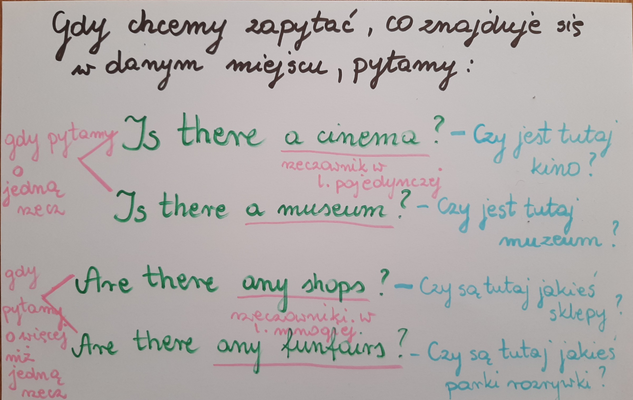 Gdy chcemy zapytać, co znajduje się
w danym miejscu, pytamy:
gdy pytamy
o
jedną
rzecz
Is there a cinema? - Czy jest tutaj
kino?
rzeczownik w
l. pojedynczej
Is there a museum? - Czy jest tutaj
muzeum?
gdy
pytamy
o więcej
niż
jedną
rzecz
Are there any shops? - Czy są tutaj jakieś
sklepy?
rzeczowniki w
l. mnogiej
Are there any funfairs? - Czy są tutaj jakieś
parki rozrywki?